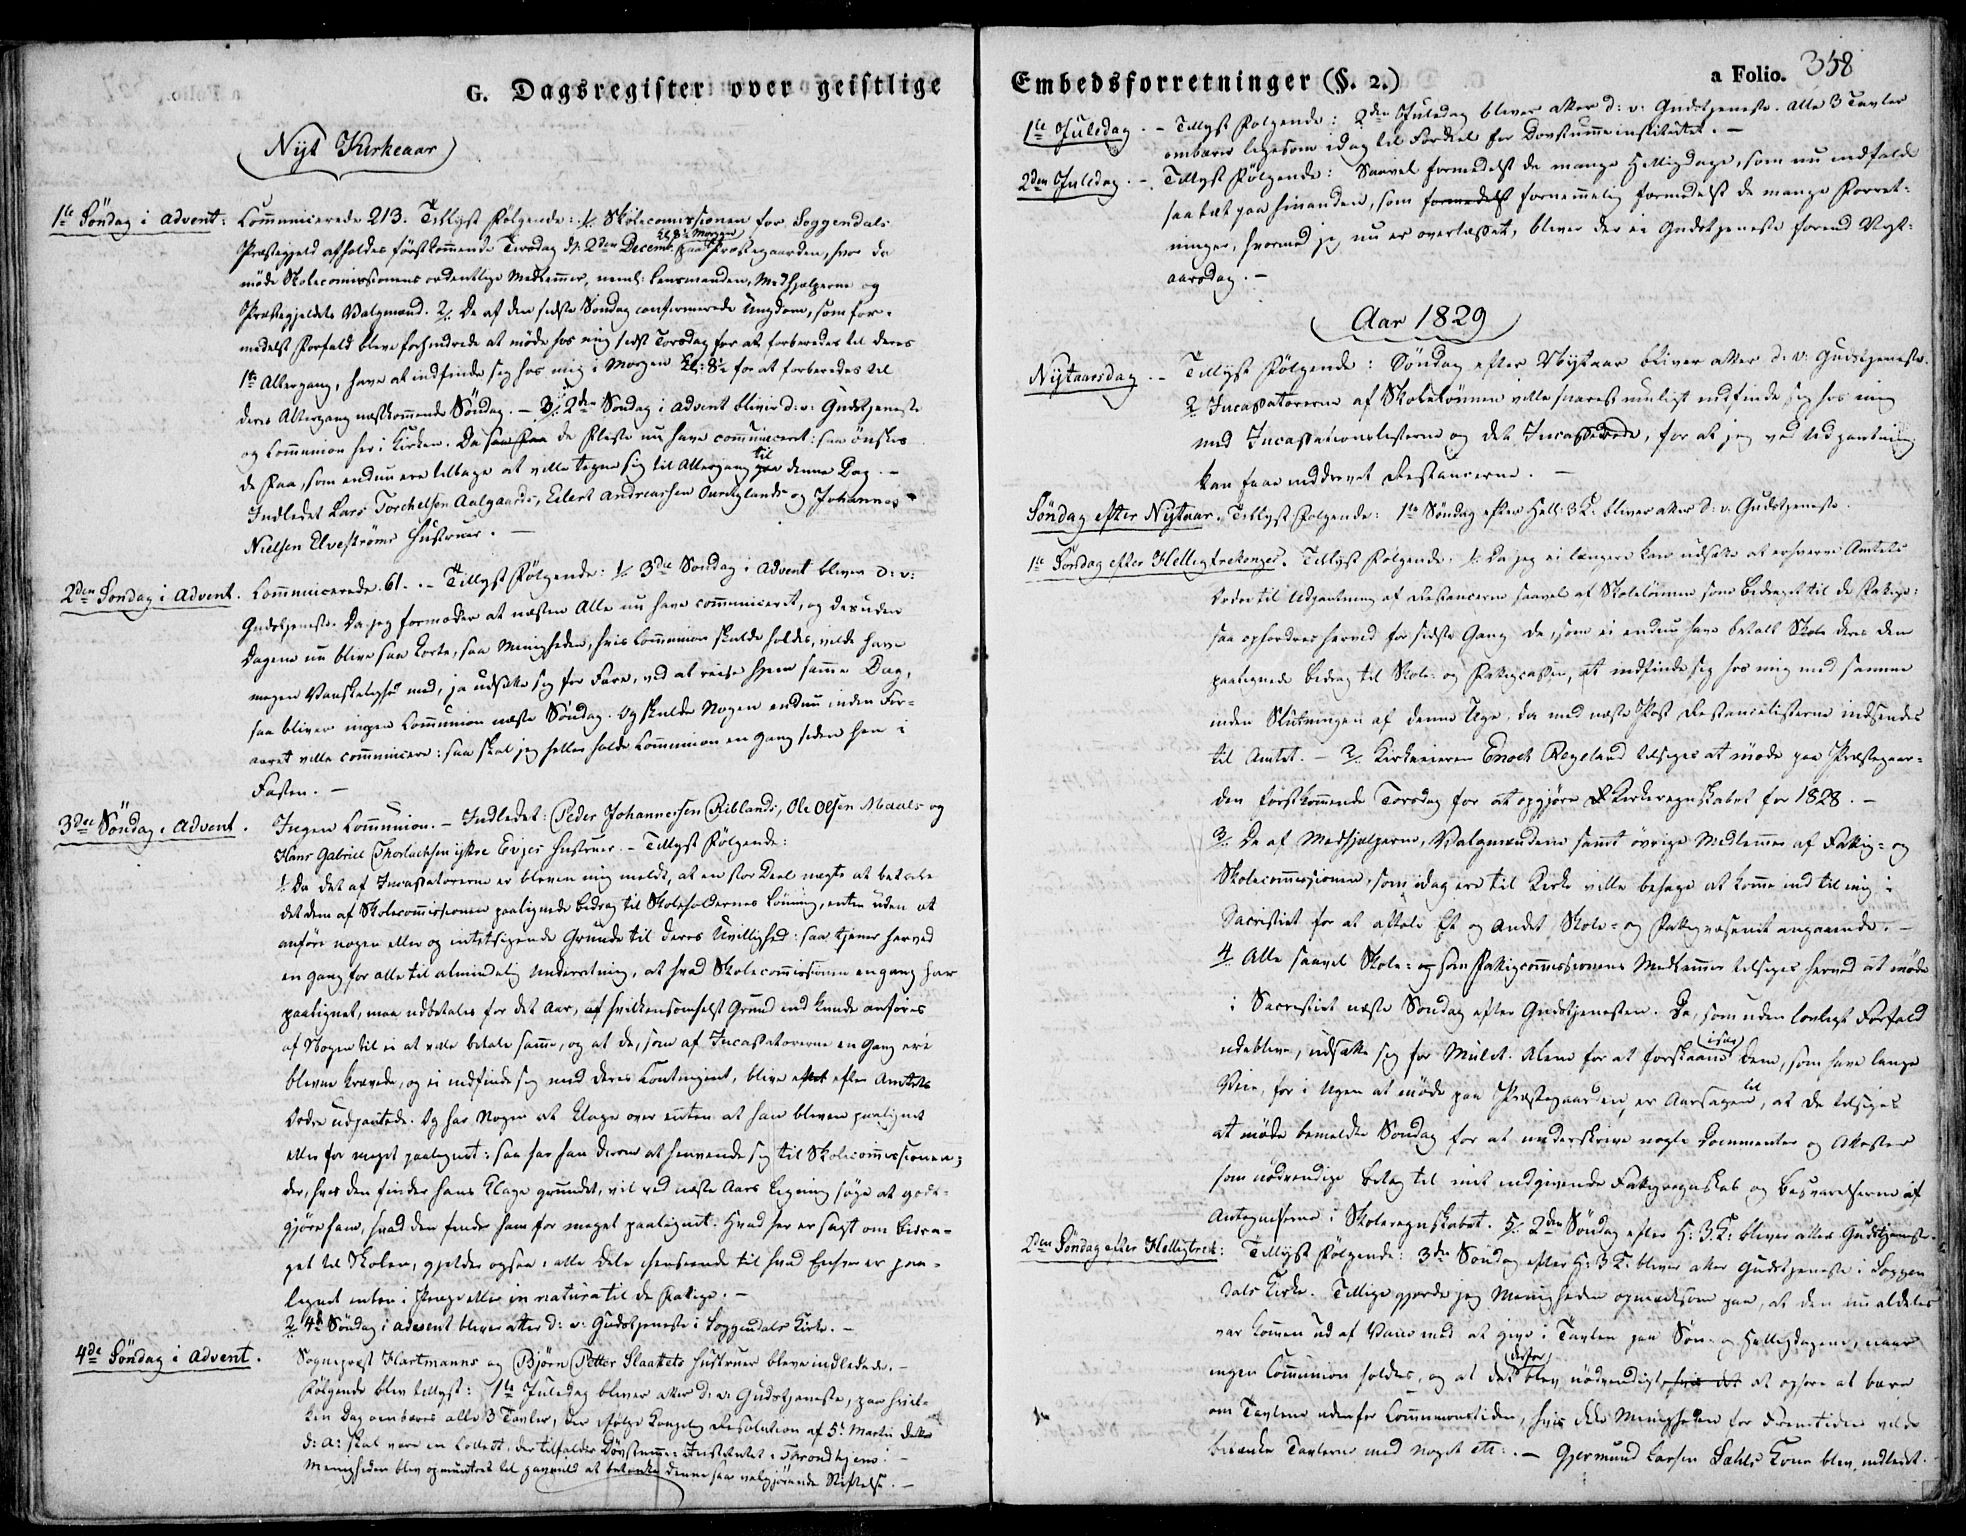 G. Dagsregister over geistlige
Nyt Kirkeaar
1te Söndag i Advent: Communicerede 213. Tillyst Følgende: 1/ Skolecommissionen for Soggendals
Præstegjeld afholdes førstkommende Tirsdag d: 2den Decemb. Kl. 8½ Morgen paa Præstegaarden, hvor da
møde Skolecommissionens ordentlige Medlemmer, neml: Lensmanden, Medhjelperne og
Præstegjeldets Valgmænd. 2/ De af den sidste Søndag confirmerede Ungdom, som for-
medelst Forfald bleve forhindrede at møde hos mig sidst Torsdag for at forberedes til deres
1te Altergang, have at indfinde sig hos mig i Morgen Kl: 8½ for at forberedes til
deres Altergang næstkommende Söndag. — 3/ 2den Søndag i Advent bliver d: v: Gudstjeneste
og Communion her i Kirken. Da saa Faa de Fleste nu have communiceret: saa ønskes
de Faa, som endnu ere tilbage at ville tegne sig til Altergang til denne Dag. —
Indledet Lars Torchelsen Aalgaards, Eilert Andreassen Ouedlands og Johannes
Nielsen Elvestrøms Hustruer. —
2den Søndag i Advent. Communicerede 61. — Tillyst Følgende: 1/ 3die Søndag i Advent bliver d: v:
Gudstjeneste. Da jeg formoder at næsten Alle nu have communiceret, og desuden
Dagene nu blive saa korte, saa Menigheden, hvis Communion skulde holdes, vilde have
megen Vanskelighed med, ja udsætte sig for Fare, ved at reise hjem samme Dag,
saa bliver ingen Communion næste Söndag. Og skulde Nogen endnu inden For-
aaret ville communicere: saa skal jeg heller holde Communion en gang siden hen i
Fasten. —
3die Søndag i Advent. Ingen Communion. — Indledet: Peder Johannesen Riblands, Ole Olsen Mydals og
Hans Gabriel Thorlachsen Evjes Hustruer. — Tillyst Følgende:
1/ Da det af Incassatorerne er bleven mig meldt, at en stor Deel nægte at betale
det dem af Skolecommissionen paalignede Bidrag til Skoleholdernes Lønning, enten uden at
anføre nogen eller og intetsigende Grunde til deres Uvillighed: saa tjener herved
en gang for alle til almindelig Underretning, at hvad Skolecommissionen engang har
paalignet, maa udbetales for det Aar, af hvilkensomhelst Grund end kunde anføres
af Nogen til ei at ville betale samme, og at de, som af Incassatorerne en Gang ere
blevne krævede, og ei indfinde sig med deres Contingent, blive efter Amtets
Ordre udpantede. Og har Nogen at klage over enten at han bleven paalignet
eller for meget paalignet: saa har han derom at henvende sig til Skolecommissionen;
der, hvis den finder hans Klage grundet, vil ved næste Aars Ligning søge at godt-
gjøre ham, hvad den finder ham for meget paalignet. Hvad her er sagt om Bidra-
get til Skolen, gjelder ogsaa i alle Dele henseende til hvad Enhver er paa-
lignet enten i Penge eller in natura til de Fattige. —
2 4de Søndag i Advent bliver atter d: v: Gudstjeneste i Soggendals Kirke. —
4de Söndag i Advent. Sognepræst Hartmanns og Björn Petter Slaattets Hustruer bleve indledede. —
Følgende blev tillyst: 1te Juledag bliver atter d: v: Gudstjeneste, paa hvil-
ken Dag ombæres alle 3 Tavler, der ifølge Kongelig Resolution af 5te Martii dette
d: A: skal være en Collect, der tilfalder Døvstumme-Institutet i Trondhjem. —
Menigheden blev opmuntret til gavmild at betænke denne saa velgjørende Stiftelse. —
Embedsforretninger (§. 2.) a Folio. 358
1te Juledag. — Tillyst Følgende: 2den Juledag bliver atter d: v: Gudstjeneste. Alle 3 Tavler
ombæres ligesom idag til Fordel for Dovstummeinstitutet. —
2den Juledag. — Tillyst Følgende: Saavel formedelst de mange Helligdage, som nu indfalde
saa tæt paa hinanden, som formedelst fornemmelig formedelst de mange Forret-
ninger, hvormed jeg nu er overlæsset, bliver der ei Gudstjeneste forend Nyt-
aarsdag. —
Aar 1829
Nytaarsdag. — Tillyst Følgende: Söndag efter Nytaar bliver atter d: v: Gudstjeneste.
2 Incassatorerne af Skolelönnen ville snarest muligt indfinde sig hos mig
med Incassationslisterne og det Incasserede, for at jeg ved Udpantning
kan faae inddrevet Restancerne. —
Söndag efter Nytaar. Tillyst Følgende: 1te Søndag efter Hell: 3 K: bliver atter d: v: Gudstjeneste.
1te Søndag efter Helligtrekonger. Tillyst Følgende: 1/ Da jeg ei længere kan udsætte at erhverve Amtets
Ordre til Udpantning af Restancerne saavel af Skolelönnen som Bidraget til de Fattige:
saa opfordres herved for sidste Gang de, som ei endnu have betalt det dem
paalignede Bidrag til Skole- og Fattigcassen, at indfinde sig hos mig med samme
inden Slutningen af denne Uge, da med næste Post Restancelisterne indsendes
til Amtet. — 2/ Kirkeeieren Enoch Regeland tilsiges at møde paa Præstegaar-
den førstkommende Torsdag for at opgjøre Kirkeregnskabet for 1828. —
3/ De af Medhjelperne, Valgmændene samt øvrige Medlemmer af Fattig- og
Skolecommissionen, som idag ere til Kirke ville behage at komme ind til mig i
Sacristiet for at aftale Et og Andet Skole- og Fattigvæsenet angaaende. —
4 Alle saavel Skole- og som Fattigcommissionens Medlemmer tilsiges herved at møde
i Sacristiet næste Søndag efter Gudstjenesten. De, som uden lovligt Forfald
udeblive, udsætte sig for Mulct. Alene for at forskaane især Dem, som have lange
Veie, for i Ugen at møde paa Præstegaarden, er Aarsagen til, at de tilsiges
at møde bemeldte Søndag for at underskrive nogle Documenter og Attester
som nødvendige Bilag til mit indgivende Fattigregnskab og Besvarelserne af
Antegnelserne i Skoleregnskabet. 5/ 2den Søndag efter H: 3 K: bliver atter Gudstjeneste.
2den Søndag efter Helligtrek: Tillyst Følgende: 3die Søndag efter H: 3 K: bliver atter Gudstjeneste i Soggen
dals Kirke. Tillige gjorde jeg Menigheden opmærksom paa, at den nu aldeles
var kommen ud af Vane med at give i Tavlen paa Søn- og Helligdagene, naar
ingen Communion holdes, og at det derfor blev nødvendigt, hvis det at ophøre at bære
om Tavlene udenfor Communionstiden, hvis ikke Menigheden for Fremtiden vilde
betænke Tavlerne med noget etc: — Gjermund Larsen Dahls Kone blev indledet.